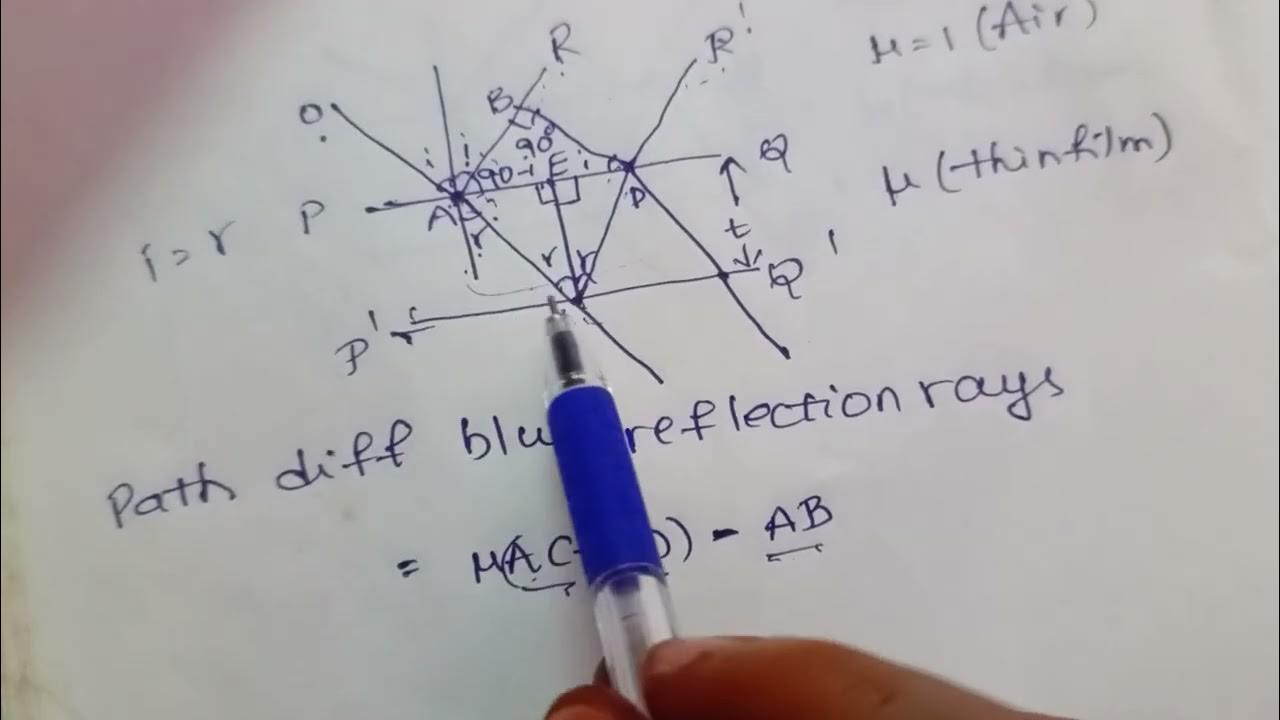 R
R'
μ=1 (Air)
O
B
90°
i
i
90-i
E
i
Q
μ (thinfilm)
P
A
D
t
i=r
r
r
r
Q'
P'
Path diff reflection rays
= μ(AC ) - AB